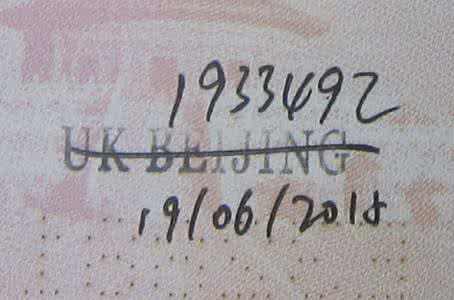 1933492
UK BEIJING
19/06/2015